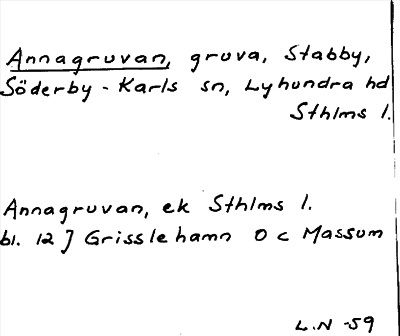 Annagruvan, gruva, Stabby,
Söderby-Karls sn, Lyhundra hd
Sthlms l.
Annagruvan, ek Sthlms l.
bl. 12 J Grisslehamn O c Massum
L.N -59